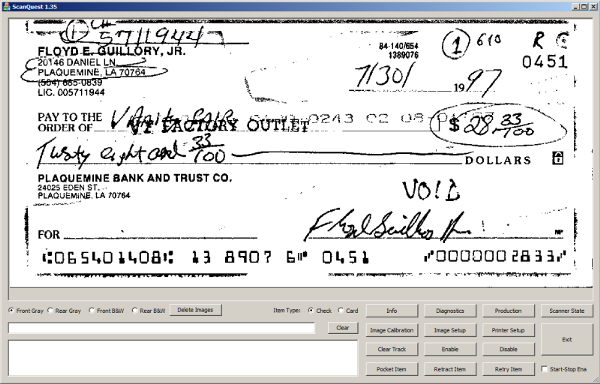 ScanQuest 1.35
CH
1 5711944
FLOYD E. GUILLORY, JR.
20146 DANIEL LN.
PLAQUEMINE, LA 70764
(504) 685-0839
LIC. 005711944
84-140/654
1389076
1 610 R
0451
7/30/ 1997
PAY TO THE
ORDER OF
VF FACTORY OUTLET
0243 02 08
$ 28 33/100
Twenty eight and 33/100 DOLLARS
PLAQUEMINE BANK AND TRUST CO.
24025 EDEN ST.
PLAQUEMINE, LA 70764
VOID
FOR
MP
065401408 13 8907 6 0451 0000002833
Front Gray Rear Gray Front B&W Rear B&W Delete Images Item Type: Check Card Info Diagnostics Production Scanner State
Clear Image Calibration Image Setup Printer Setup Exit
Clear Track Enable Disable
Pocket Item Retract Item Retry Item Start-Stop Ena